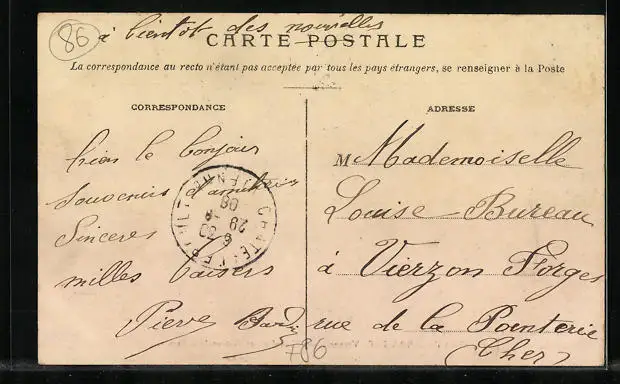 86
à bientôt des nouvelles
CARTE POSTALE
La correspondance au recto n'étant pas acceptée par tous les pays étrangers, se renseigner à la Poste
CORRESPONDANCE
bien le bonjour
souvenirs d'amitiés
Sinceres
milles baisers
Pierre
ADRESSE
M Mademoiselle
Louise Bureau
à Vierzon Forges
rue de la Ponterie
Cher
786
CHATELLERAULT VIENNE
29
08